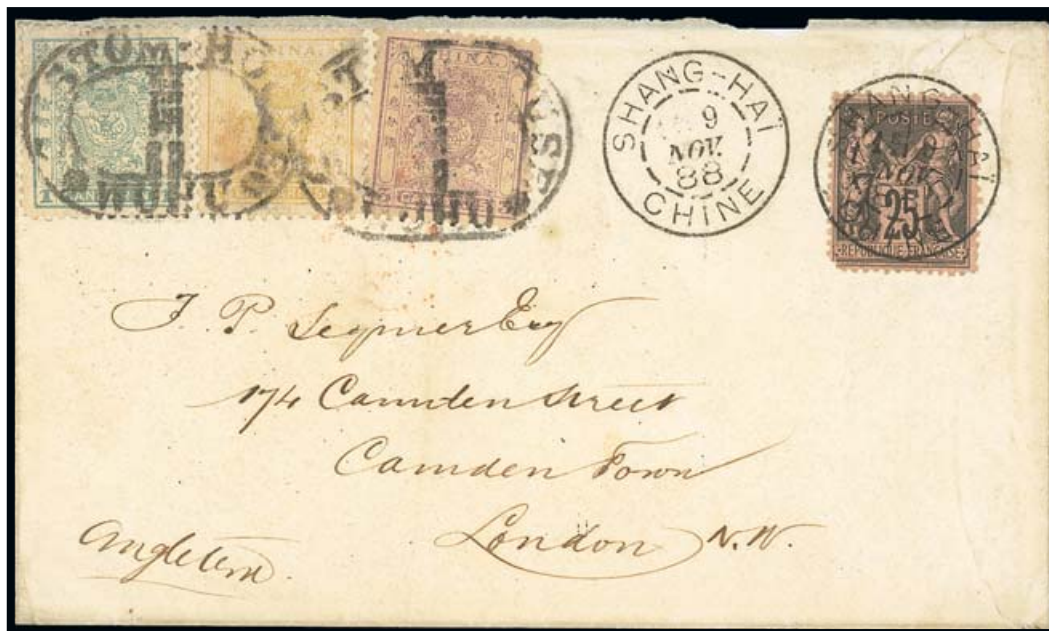 CUSTOM HOUSE
WUHU
CHINA
SHANG-HAÏ
9
NOV.
88
CHINE
SHANG-HAÏ
POSTE
NOV
25
REPUBLIQUE FRANCAISE
J. P. Seymer Esq
174 Camden Street
Camden Town
London N.W.
Angleterre.